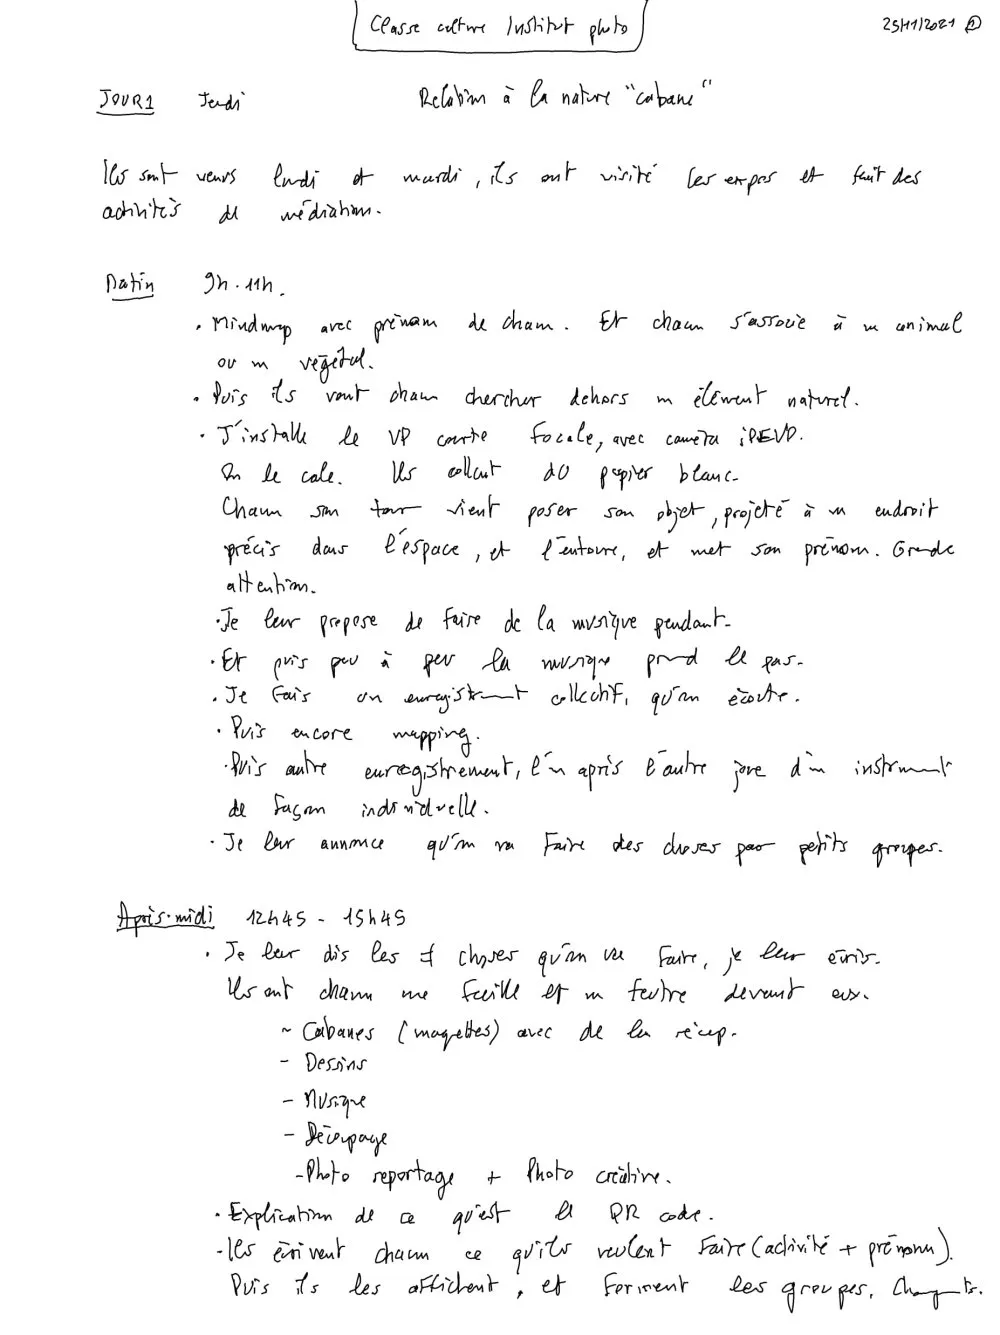 Classe culture Institut photo
25/11/2021 ①
JOUR1 Jeudi Relation à la nature "cabane"
Ils sont venus lundi et mardi, ils ont visité les expos et fait des
activités de médiation.
Matin 9h-11h.
• Mindmap avec prénom de chacun. Et chacun s'associe à un animal
ou un végétal.
• Puis ils vont chacun chercher dehors un élément naturel.
• J'installe le VP courte focale, avec caméra iPEVO.
On le cale. Ils collent du papier blanc.
Chacun son tour vient poser son objet, projeté à un endroit
précis dans l'espace, et l'entoure, et met son prénom. Grande
attention.
• Je leur propose de faire de la musique pendant.
• Et puis peu à peu la musique prend le pas.
• Je fais un enregistrement collectif, qu'on écoute.
• Puis encore mapping.
• Puis autre enregistrement, l'un après l'autre joue d'un instrument
de façon individuelle.
• Je leur annonce qu'on va faire des choses par petits groupes.
Après-midi 12h45 - 15h45
• Je leur dis les ≠ choses qu'on va faire, je leur écris.
Ils ont chacun une feuille et un feutre devant eux.
~ Cabanes (maquettes) avec de la récup.
- Dessins
- Musique
- Découpage
- Photo reportage + Photo créative.
• Explication de ce qu'est le QR code.
- Ils écrivent chacun ce qu'ils veulent faire (activité + prénom).
Puis ils les affichent, et forment les groupes. Changements.